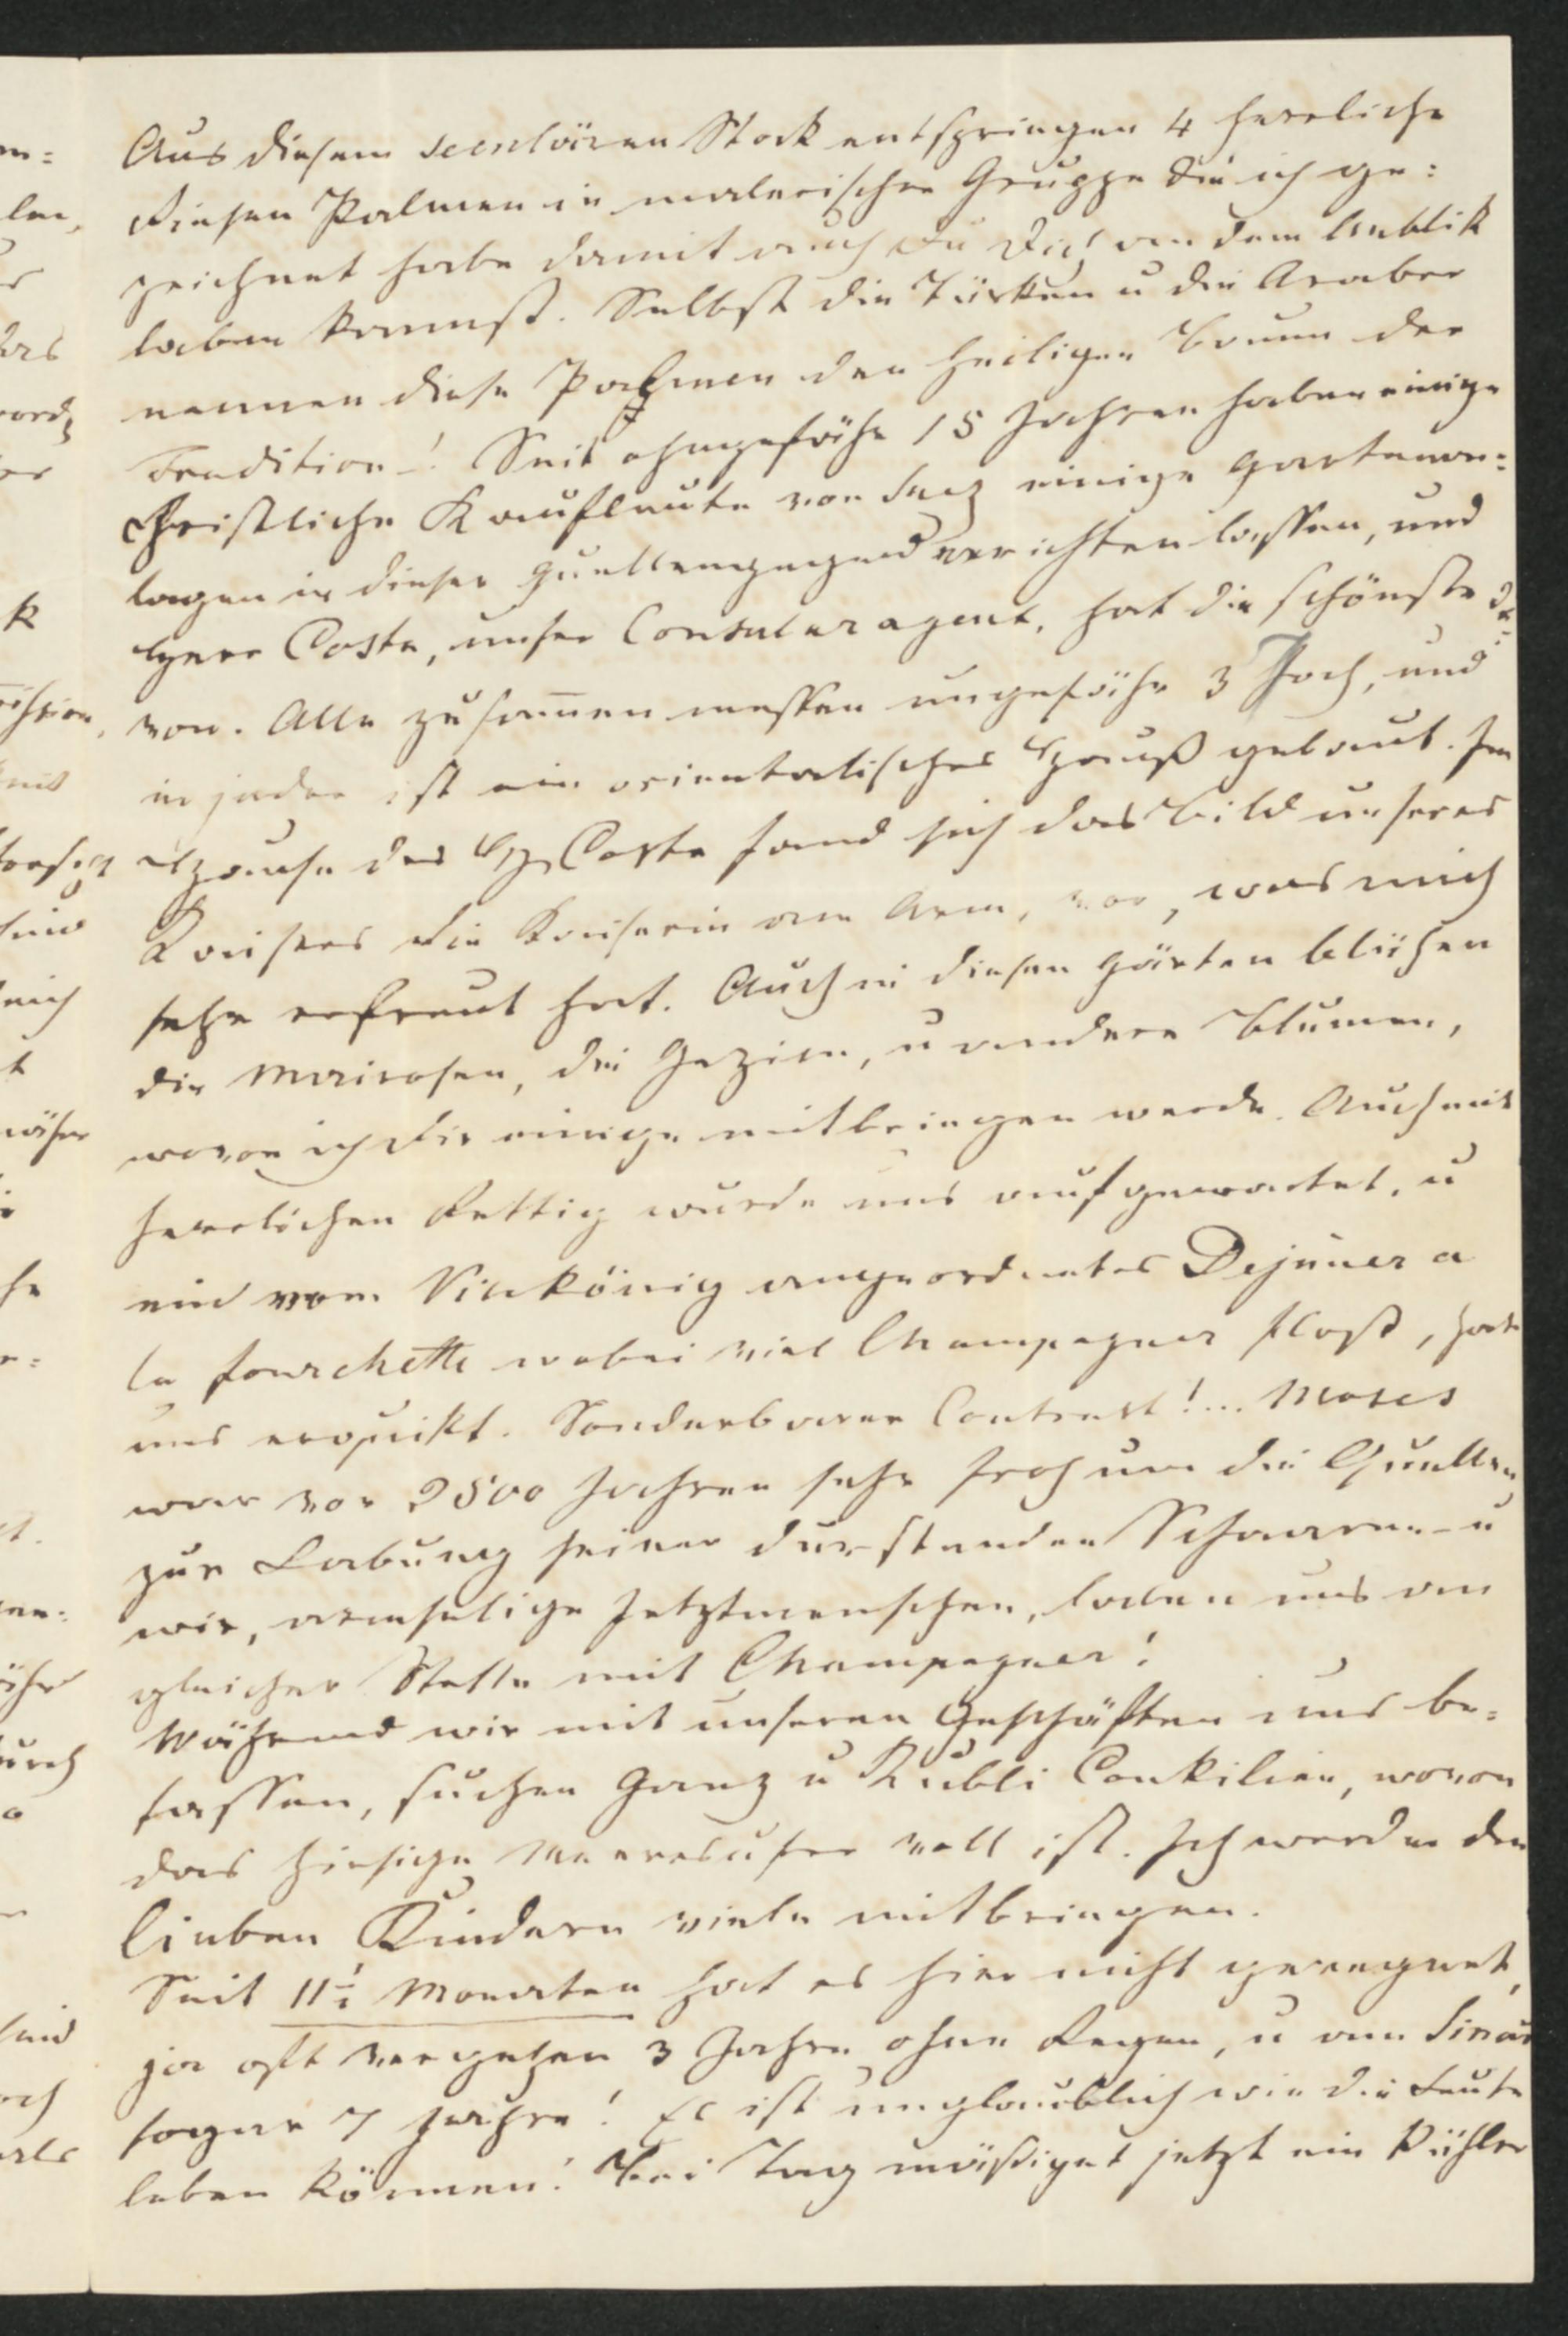 Aus diesem seculären Stock entspringen 4 herrliche
Riesen Palmen in malerischer Gruppe die ich ge:
zeichnet habe damit auch Du Dich an dem Anblik
laben kannst. Selbst die Türken u die Araber
nennen diese Palmen den heiligen Baum der
Tradition! Seit ohngefähr 15 Jahren haben einige
Christliche Kaufleute von Suez einige Gartenan:
lagen in dieser Quellengegend errichten lassen, und
Herr Costa, unser Consularagent, hat die schönste da:
von. Alle zusam̅en messen ungefähr 3 Joch, und
in jeder ist ein orientalisches Hauß gebaut. Im
Hause des H Costa fand sich das Bild unseres
Kaisers die Kaiserin am Arm, vor, was mich
sehr erfreut hat. Auch in diesen Gärten blühen
die Mairosen, die Gazien, u andere Blumen,
wovon ich Dir einige mitbringen werde. Auch mit
herrlichen Rettig wurde uns aufgewartet, u
ein vom Vicekönig angeordnetes Dejeuner a
la fourchette wobei viel Champagner floß, hat
uns erquikt. Sonderbarer Contrast!... Moses
war vor 2500 Jahren sehr froh um die Quellen
zur Labung seiner durstenden Schaaren - u
wir, armselige Jetztmenschen, laben uns an
gleicher Stelle mit Champagner!
Während wir mit unseren Geschäften uns be:
fassen, suchen Ganz u Kubli Conkilien, wovon
das hiesige Meeresufer voll ist. Ich werde den
lieben Kindern viele mitbringen.
Seit 11½ Monaten hat es hier nicht geregnet,
ja oft vergehen 3 Jahre ohne Regen, u am Sinai
sogar 7 Jahre! Es ist unglaublich wie die Leute
leben können! Bei Tag mäßiget jetzt ein kühler